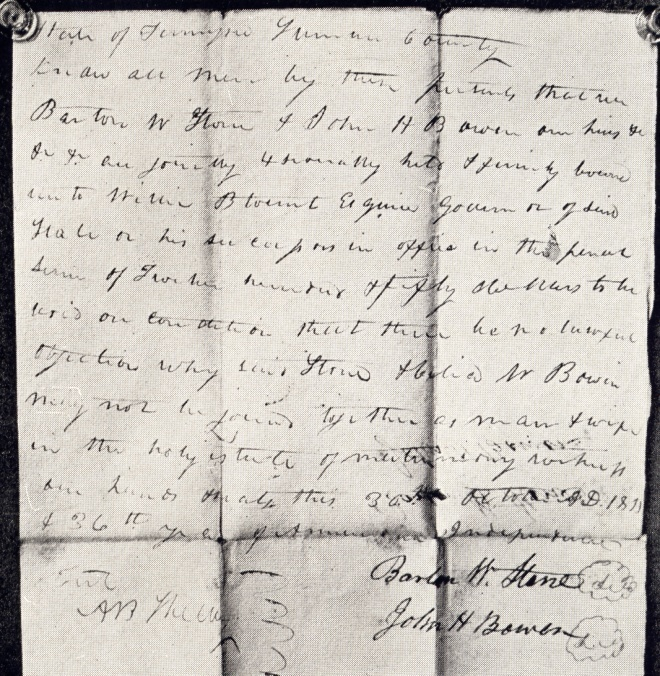 State of Tennessee Sumner County
Know all men by these presents that we
Barton W Stone & John H Bowen our heirs &c
&c &c are jointly & severally held & firmly bound
unto Willie Blount Esquire Governor of said
State or his successors in office in the penal
sum of Twelve hundred & fifty dollars to be
void on condition that there be no lawful
objection why said Stone & Celia W Bowen
may not be joined together as man & wife
in the holy estate of matrimony witness
our hands & seals this 30th October AD. 1811
& 36th year of American Independence
Barton W. Stone
John H Bowen
Test